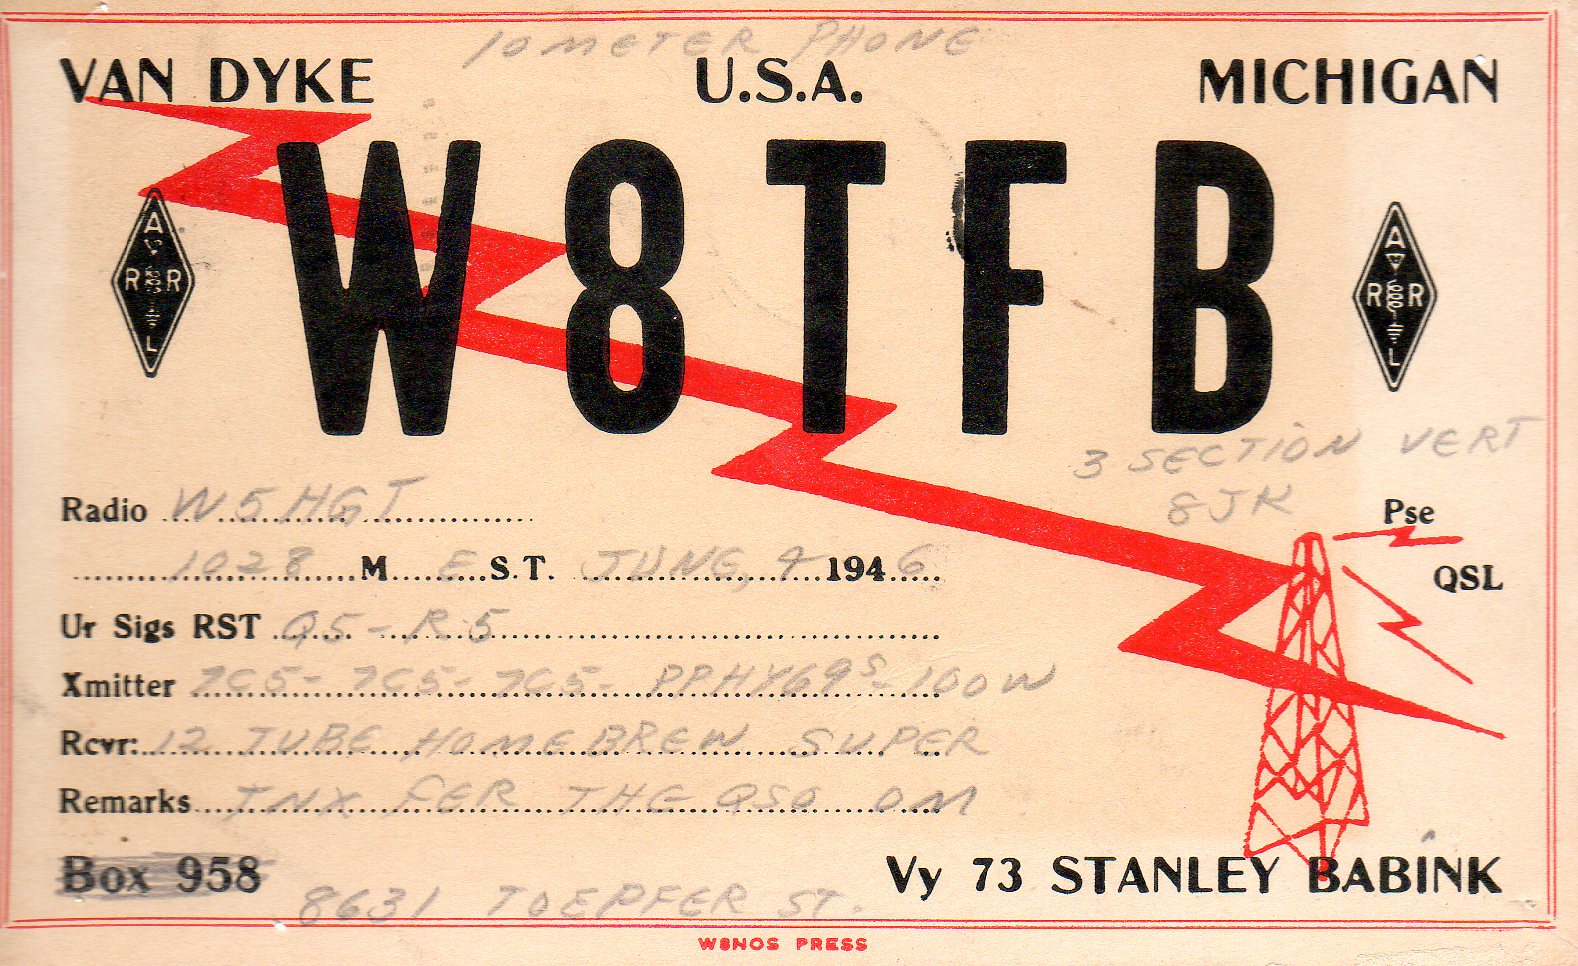 10 METER PHONE
VAN DYKE U.S.A. MICHIGAN
W8TFB
A
R R
L
A
R R
L
3 SECTION VERT
8JK
Radio W5HGT
Pse
1028 M. E S.T. JUNE, 9 1946
QSL
Ur Sigs RST Q5 - R5
Xmitter 7C5 - 7C5 - 7C5 - PPHY69S - 100W
Rcvr: 12 TUBE HOMEBREW SUPER
Remarks TNX FER THE QSO OM
Box 958 Vy 73 STANLEY BABINK
8631 TOEPFER ST.
W8NOS PRESS